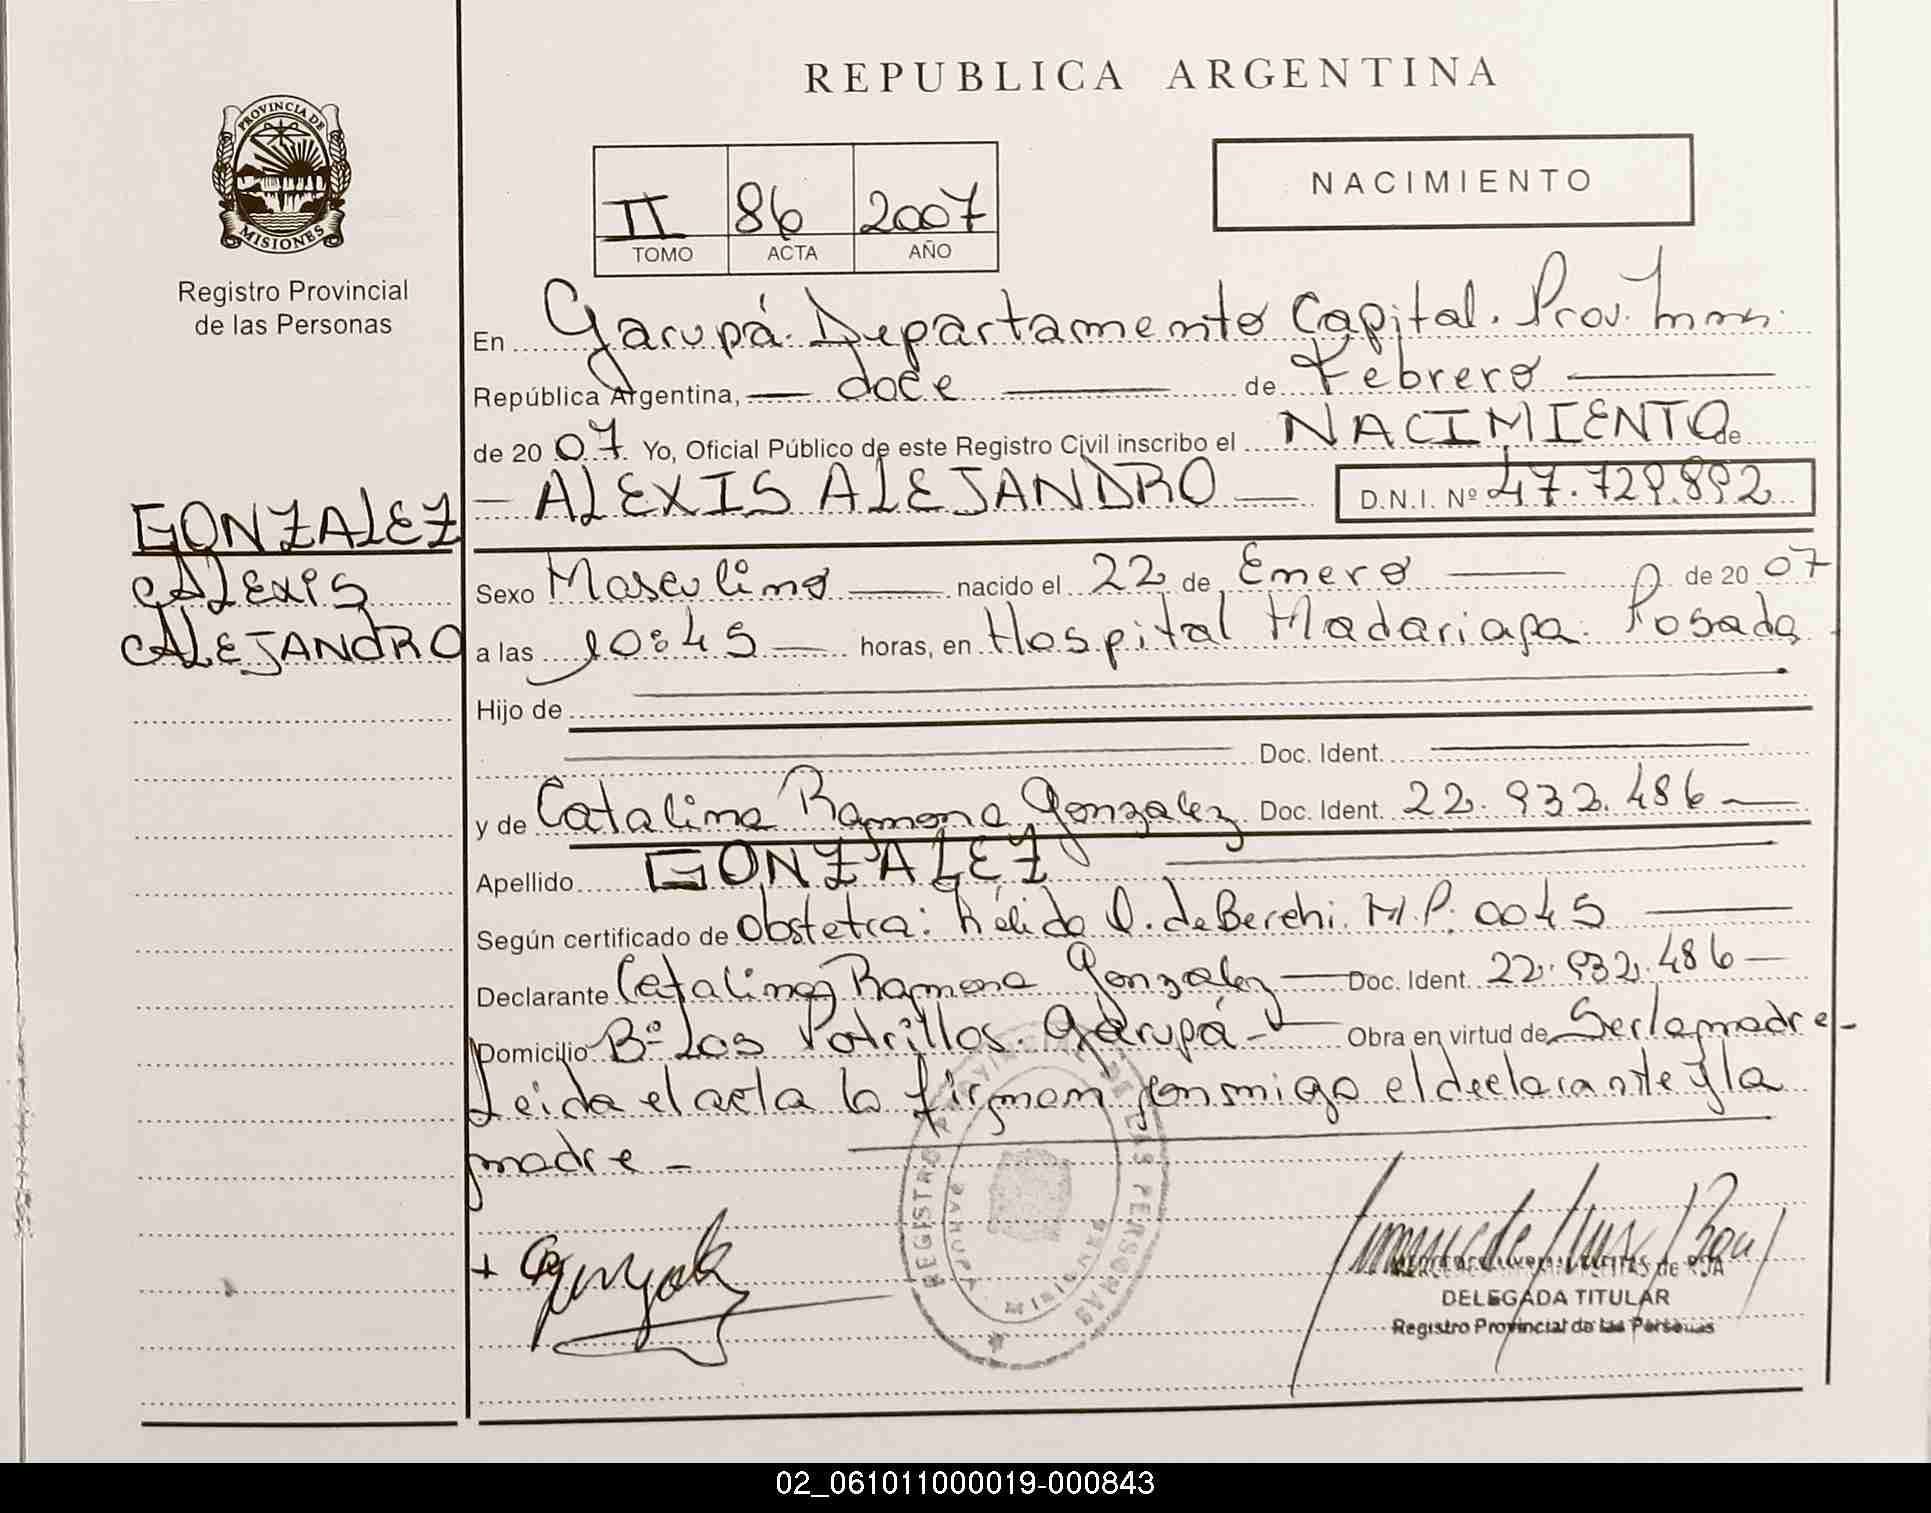 REPUBLICA ARGENTINA
PROVINCIA DE
MISIONES
Registro Provincial
de las Personas
II 86 2007
TOMO ACTA AÑO
NACIMIENTO
En Garupá. Departamento Capital. Prov. Mnes.
República Argentina, doce de Febrero
de 2007 Yo, Oficial Público de este Registro Civil inscribo el NACIMIENTO de
ALEXIS ALEJANDRO D.N.I. Nº 47.729.892
GONZALEZ
ALEXIS
ALEJANDRO
Sexo Masculino nacido el 22 de Enero de 2007
a las 10:45 horas, en Hospital Madariaga. Posadas
Hijo de
Doc. Ident.
y de Catalina Ramona Gonzalez Doc. Ident. 22.932.486
Apellido GONZALEZ
Según certificado de Obstetra: Nélida Q. de Berchi. M.P. 0045
Declarante Catalina Ramona Gonzalez Doc. Ident. 22.932.486
Domicilio Bº Los Potrillos. Garupá- Obra en virtud de Ser la madre-
Leida el acta la firman conmigo el declarante y la
madre -
REGISTRO PROVINCIAL DE LAS PERSONAS
GARUPA - MISIONES
DELEGADA TITULAR
Registro Provincial de las Personas
02_061011000019-000843